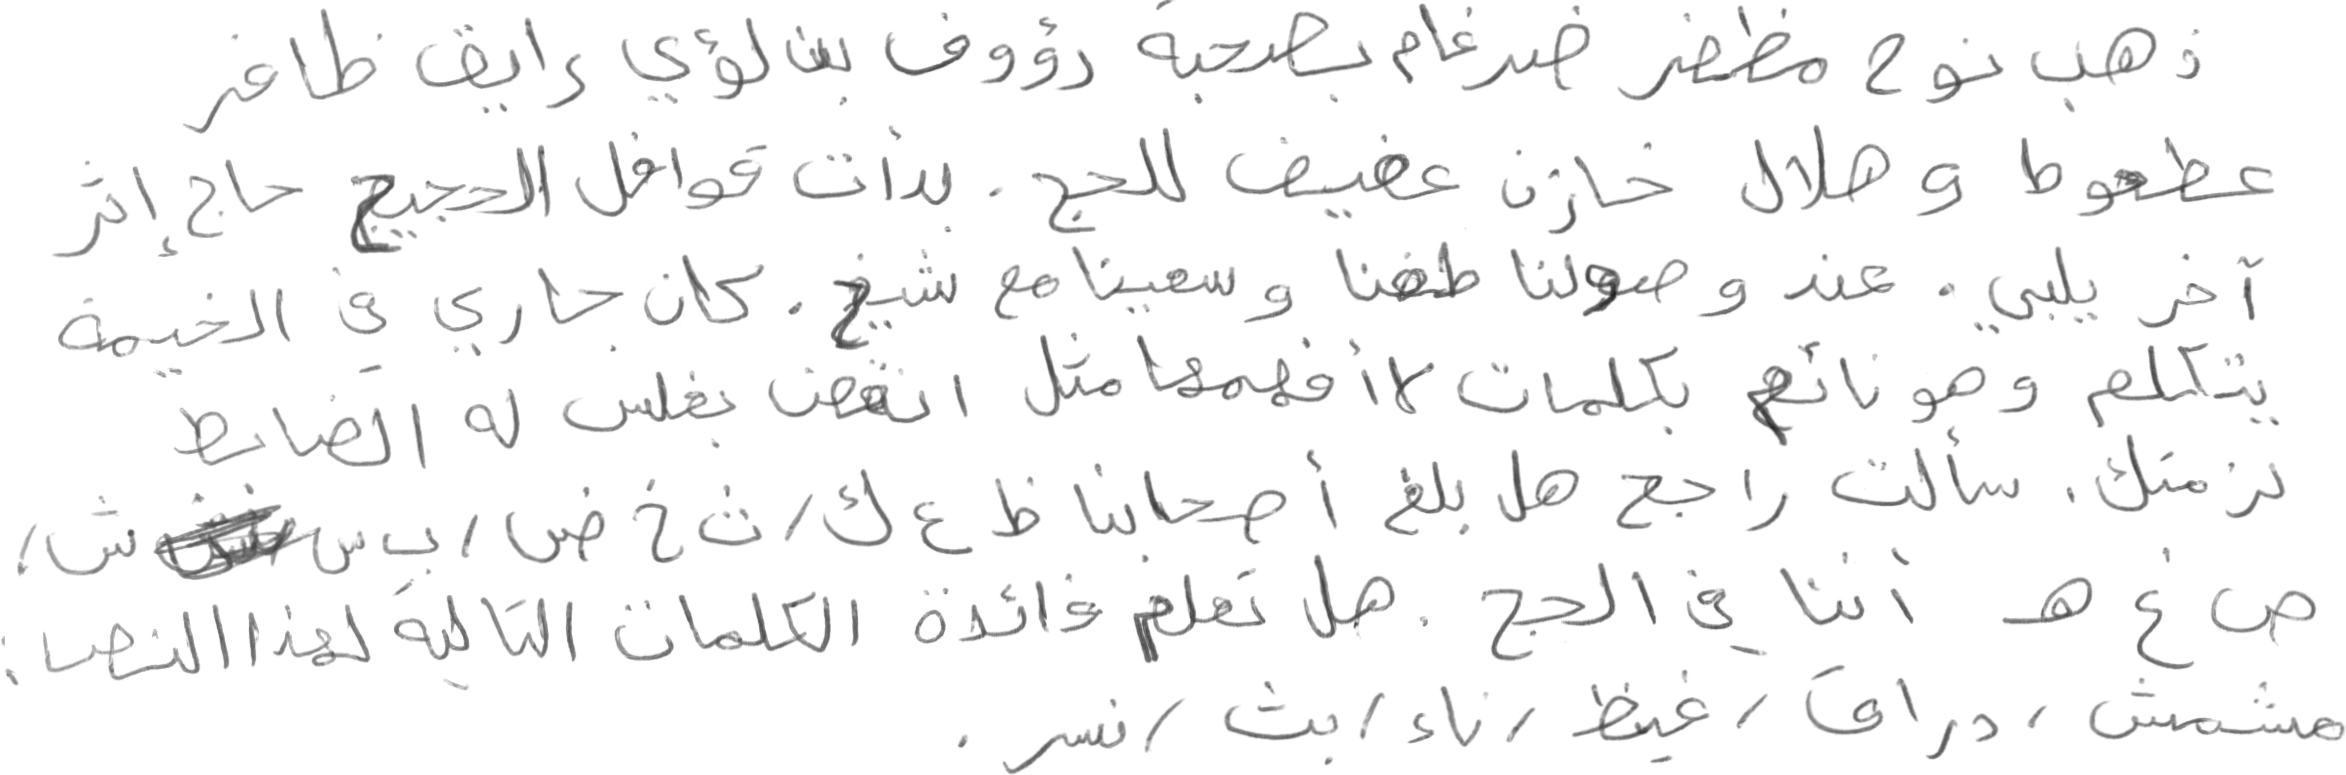 ذهب نوح مظفر ضرغام بصحبة رؤوف بن لؤي رايق ظافر
عطعوط و هلال خازن عفيف للحج . بدأت قوافل الحجيج حاج إثر
آخر يلبي . عند وصولنا طفنا وسعينا مع شيخ . كان جاري في الخيمة
يتكلم وهو نائم بكلمات لا أفهمها مثل انقض بغلس له الضابط
نزمتك . سألت راجح هل بلغ أصحابنا ظ ع ك / ث خ ض / ب س ش /
ص غ هـ أننا في الحج . هل تعلم فائدة الكلمات التالية لهذا النص :
مشمش / دراق / غيظ / ناء / بث / نسر .